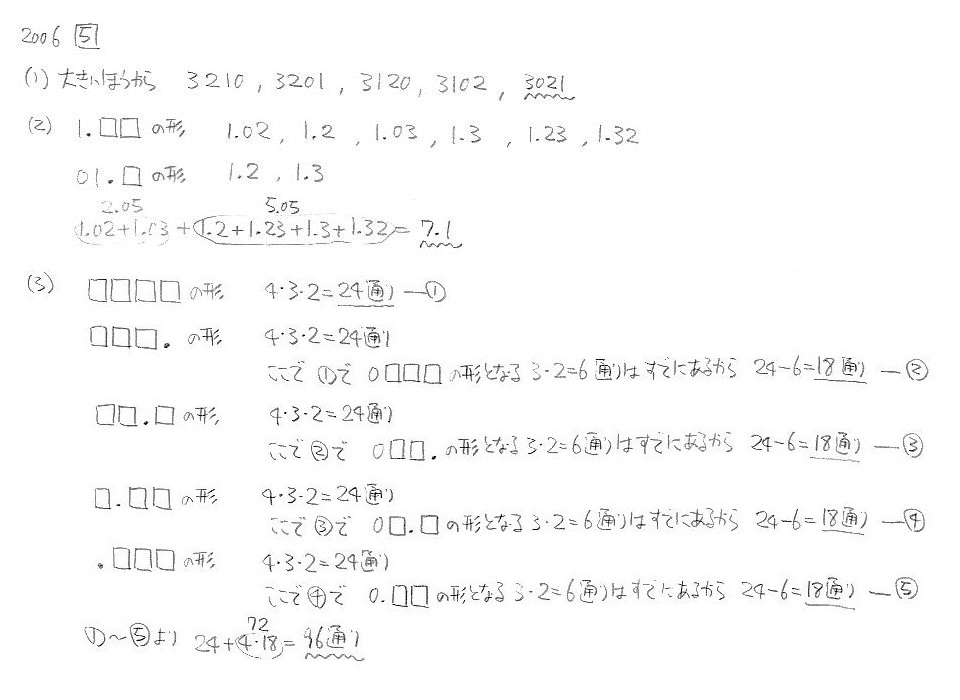 2006 5
(1) 大きいほうから 3210, 3201, 3120, 3102, 3021
(2) 1.□□の形 1.02, 1.2, 1.03, 1.3, 1.23, 1.32
01.□の形 1.2, 1.3
2.05 5.05
1.02+1.03+1.2+1.23+1.3+1.32=7.1
(3) □□□□の形 4・3・2=24通り―①
□□□.の形 4・3・2=24通り
ここで①で0□□□の形となる3・2=6通りはすでにあるから 24-6=18通り―②
□□.□の形 4・3・2=24通り
ここで②で0□□.の形となる3・2=6通りはすでにあるから 24-6=18通り―③
□.□□の形 4・3・2=24通り
ここで③で0□.□の形となる3・2=6通りはすでにあるから 24-6=18通り―④
.□□□の形 4・3・2=24通り
ここで④で0.□□の形となる3・2=6通りはすでにあるから 24-6=18通り―⑤
72
①~⑤より 24+4・18=96通り